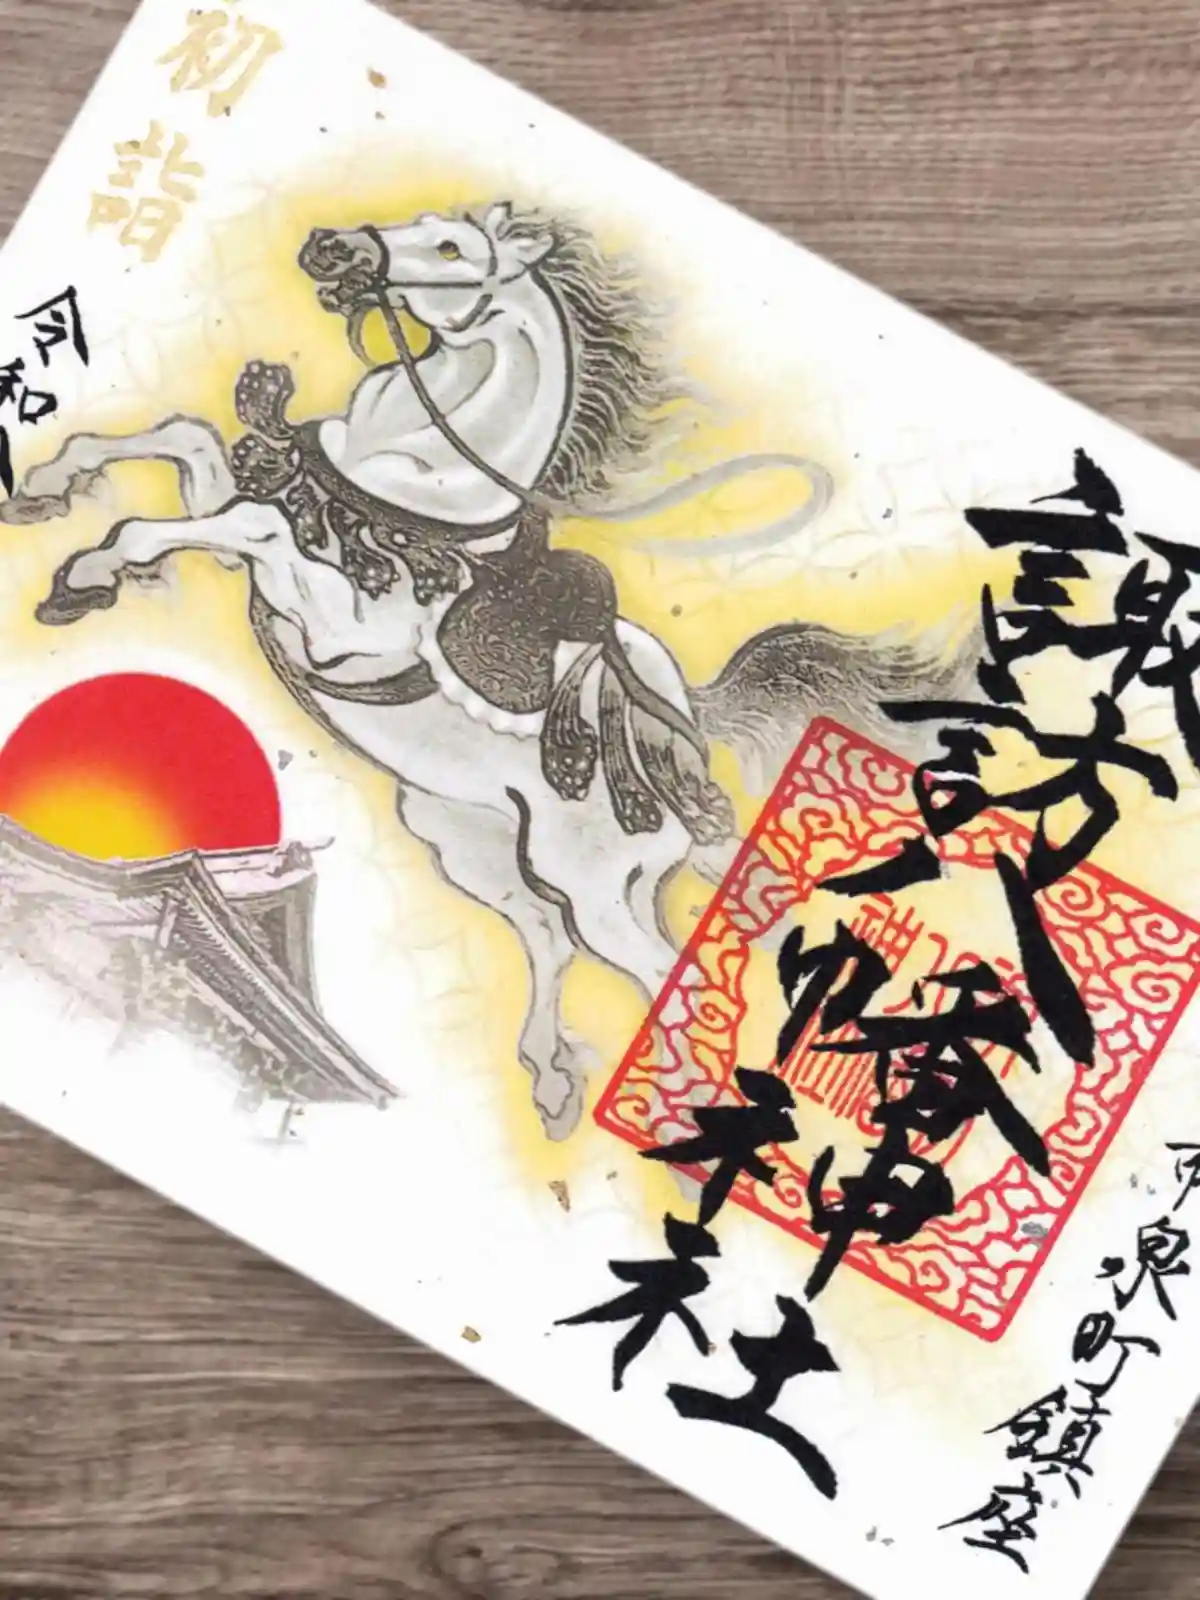 市泉町鎮座
諏訪八幡神社
初詣
令和八